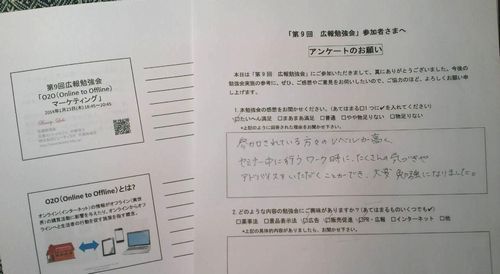 第9回広報勉強会
「O2O(Online to Offline)
マーケティング」
2014年1月23日(木) 18:45～20:45
O2O(Online to Offline)とは?
オンライン(インターネット)の情報がオフライン(実世
界)の購買活動に影響を与えたり、オンラインからオフ
ラインへと生活者の行動を促す施策を指す概念。
「第9回 広報勉強会」参加者さまへ
アンケートのお願い
本日は「第9回 広報勉強会」にご参加いただきまして、真にありがとうございました。今後の
勉強会実施の参考に、ぜひ、ご感想やご意見をお伺いしたいので、ご協力のほど、よろしくお願い申
し上げます。
1. 本勉強会の感想をお聞かせください。(あてはまる□1つに✓を入れてください)
☑たいへん満足 □まあまあ満足 □普通 □やや物足りない □物足りない
*上記のように回答された理由をお聞かせ下さい。
参加されている方々のレベルが高く、
セミナー中に行うワーク時に、たくさんの気づきや
アドバイスをいただくことができ、大変勉強になりました。
2. どのような内容の勉強会にご興味がありますか?(あてはまるものいくつでも✓)
□薬事法 □景品表示法 ☑広告 ☑販売促進 ☑PR・広報 □インターネット □他
*上記の具体的内容がありましたら、お聞かせ下さい。